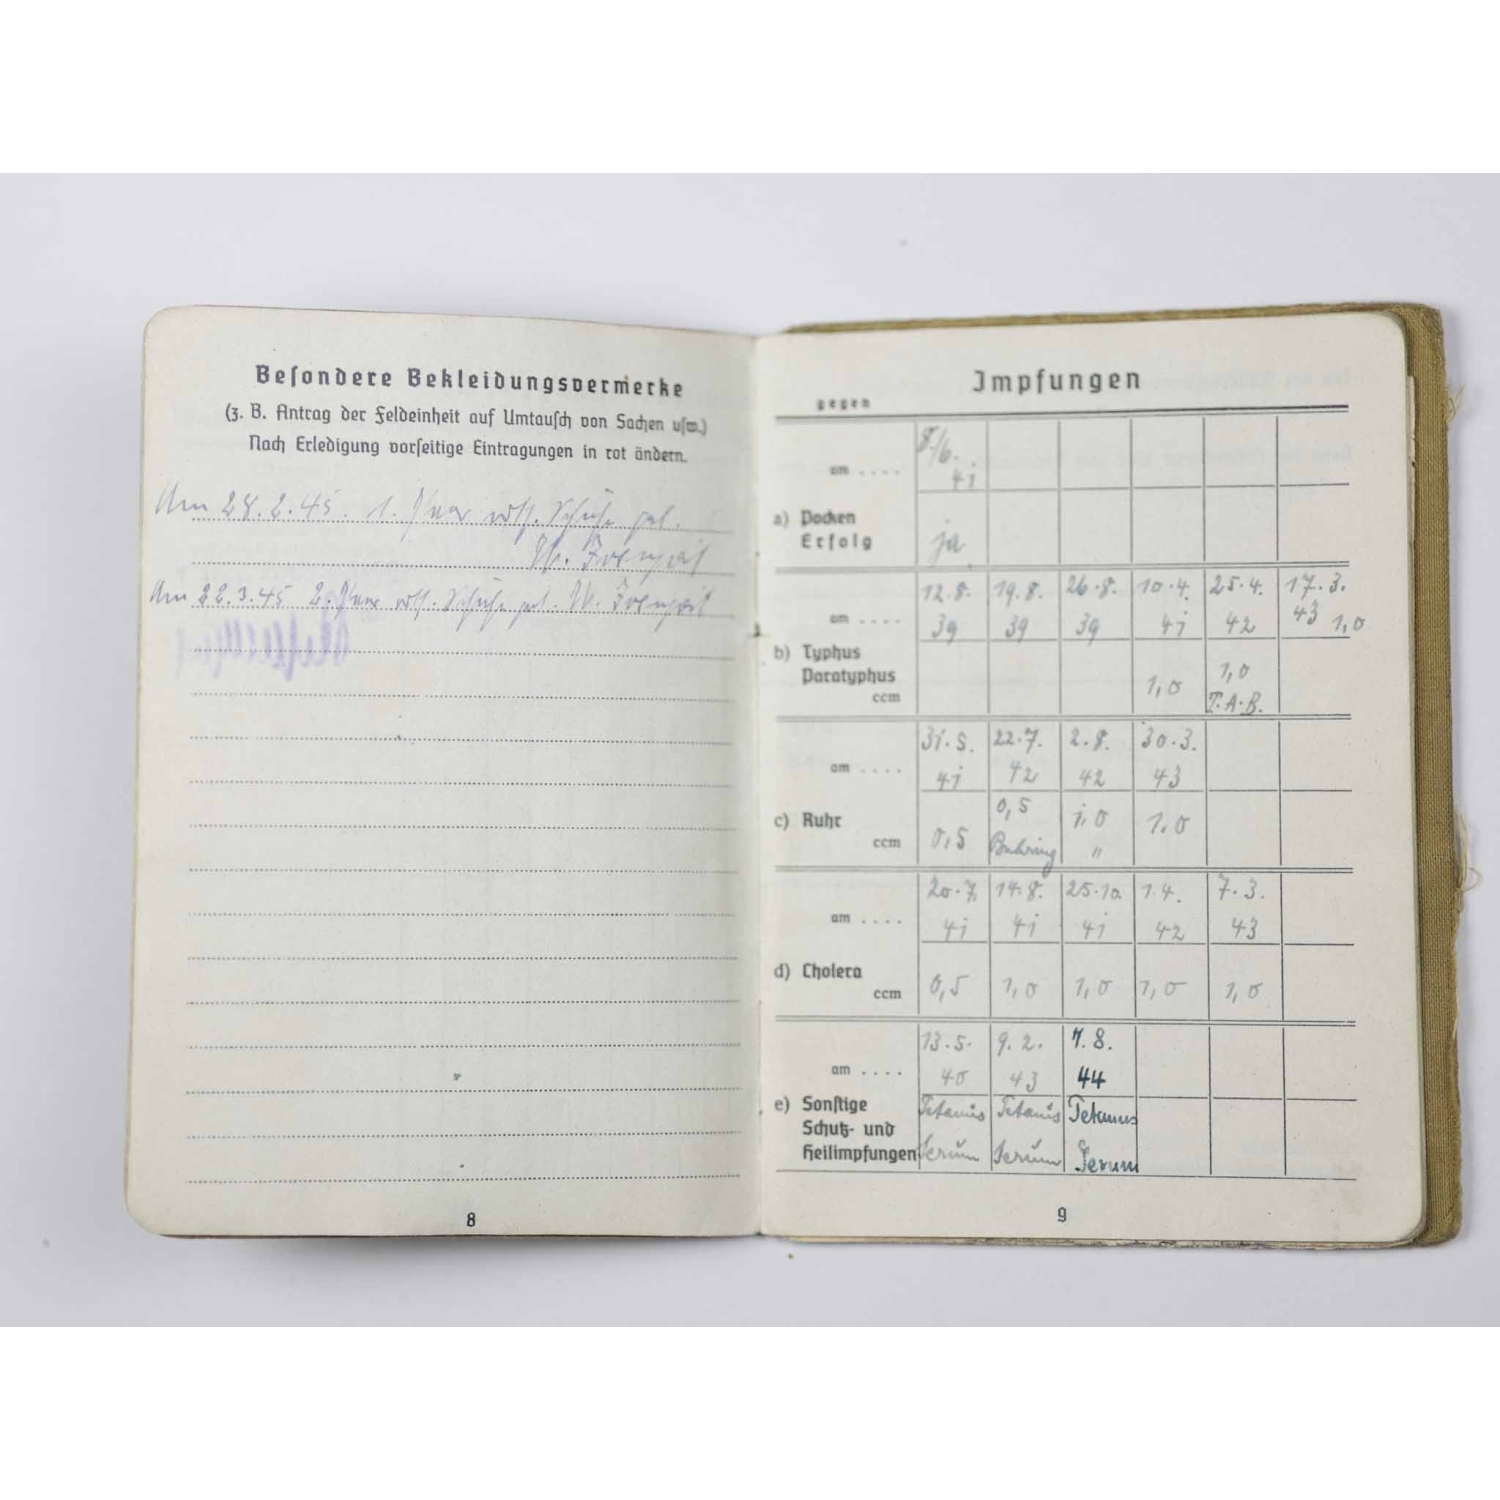 Besondere Bekleidungsvermerke
(z. B. Antrag der Feldeinheit auf Umtausch von Sachen usw.)
Nach Erledigung vorseitige Eintragungen in rot ändern.
Am 28.2.45. 1. Paar Schuhe
Am 22.3.45 2. Paar Schuhe
8
Impfungen
gegen
am .... 8./6. 41
a) Pocken
Erfolg ja
am .... 12.8. 39 19.8. 39 26.8. 39 10.4. 41 25.4. 42 17.3. 43 1,0
b) Typhus
Paratyphus
ccm 1,0 1,0 T.A.B.
am .... 31.5. 41 22.7. 42 2.8. 42 30.3. 43
c) Ruhr
ccm 0,5 0,5 Behring 1,0 " 1,0
am .... 20.7. 41 14.8. 41 25.10 41 1.4. 42 7.3. 43
d) Cholera
ccm 0,5 1,0 1,0 1,0 1,0
am .... 13.5. 40 9.2. 43 7.8. 44
e) Sonstige Tetanus Tetanus Tetanus
Schutz- und
Heilimpfungen Serum Serum Serum
9